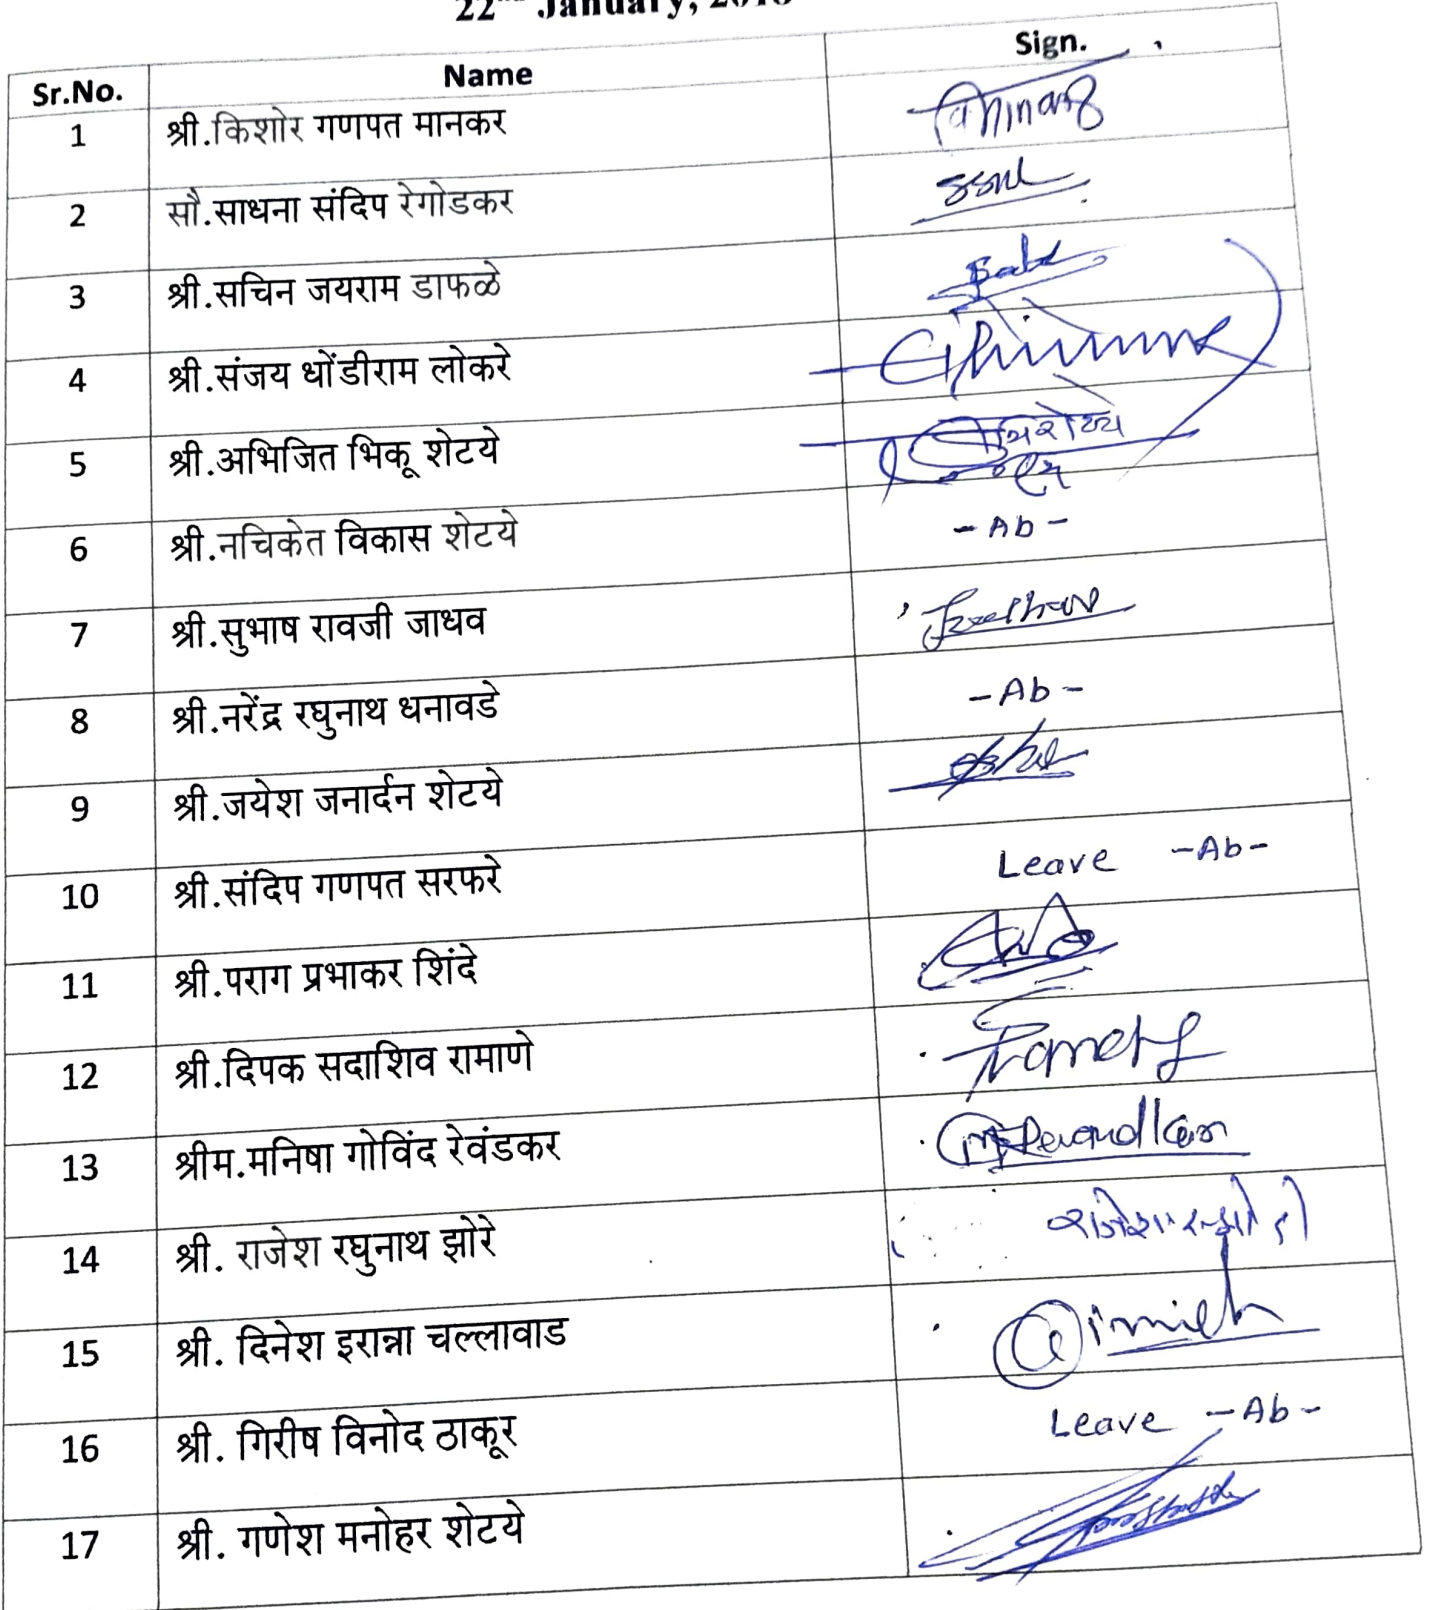 22nd January, 2018
Sr.No. Name Sign.
1 श्री.किशोर गणपत मानकर
2 सौ.साधना संदिप रेगोडकर
3 श्री.सचिन जयराम डाफळे
4 श्री.संजय धोंडीराम लोकरे
5 श्री.अभिजित भिकू शेटये
6 श्री.नचिकेत विकास शेटये - Ab -
7 श्री.सुभाष रावजी जाधव
8 श्री.नरेंद्र रघुनाथ धनावडे - Ab -
9 श्री.जयेश जनार्दन शेटये
10 श्री.संदिप गणपत सरफरे Leave - Ab -
11 श्री.पराग प्रभाकर शिंदे
12 श्री.दिपक सदाशिव रामाणे
13 श्रीम.मनिषा गोविंद रेवंडकर
14 श्री. राजेश रघुनाथ झोरे
15 श्री. दिनेश इरान्ना चल्लावाड
16 श्री. गिरीष विनोद ठाकूर Leave - Ab -
17 श्री. गणेश मनोहर शेटये